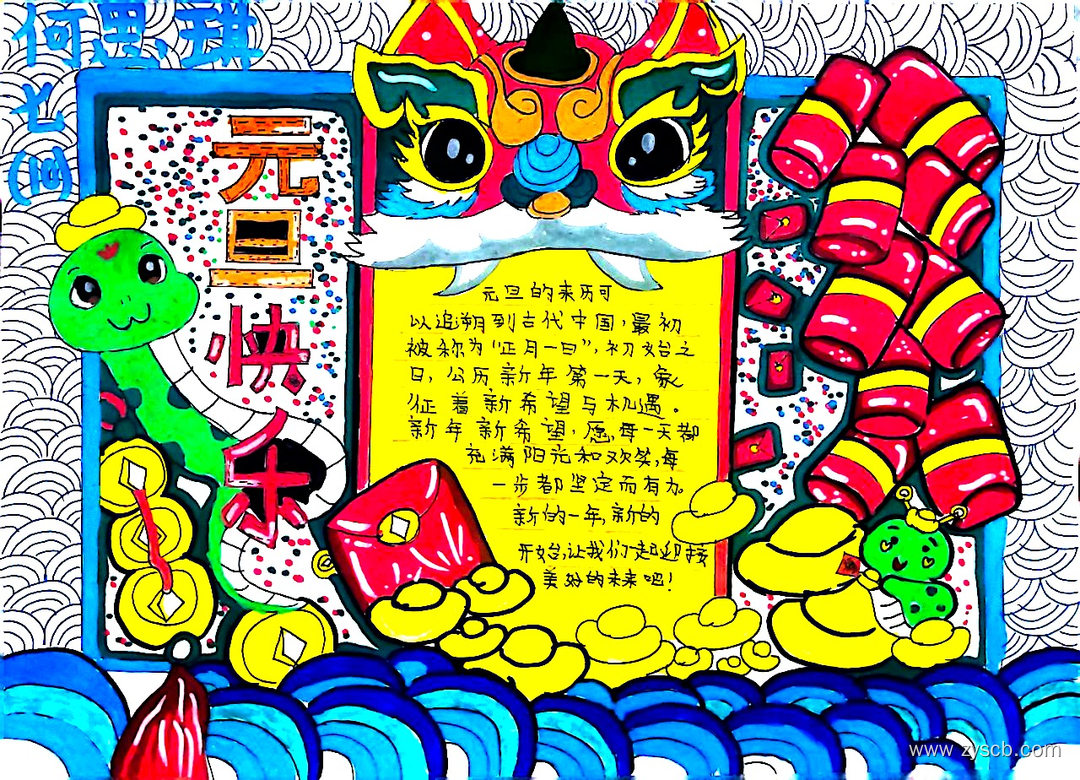 何思琪
七
(四)
元旦快乐
元旦的来历可
以追朔到古代中国,最初
被称为“正月一日”,初始之
日,公历新年第一天,象
征着新希望与机遇。
新年新希望,愿,每一天都
充满阳光和欢笑,每
一步都坚定而有力。
新的一年,新的
开始,让我们一起迎接
美好的未来吧!
www.zyscb.com